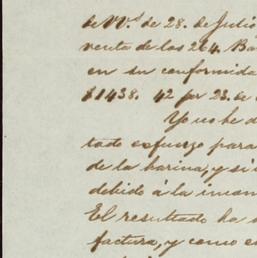 de VV.s de 28. de Juli
venta de los 264. Ba
en su conformida
$1438. 42 por 23. de
Yo no he d
tado esfuerzo para
de la harina, y si
debido á la incon
El resultado ha
factura, y como e